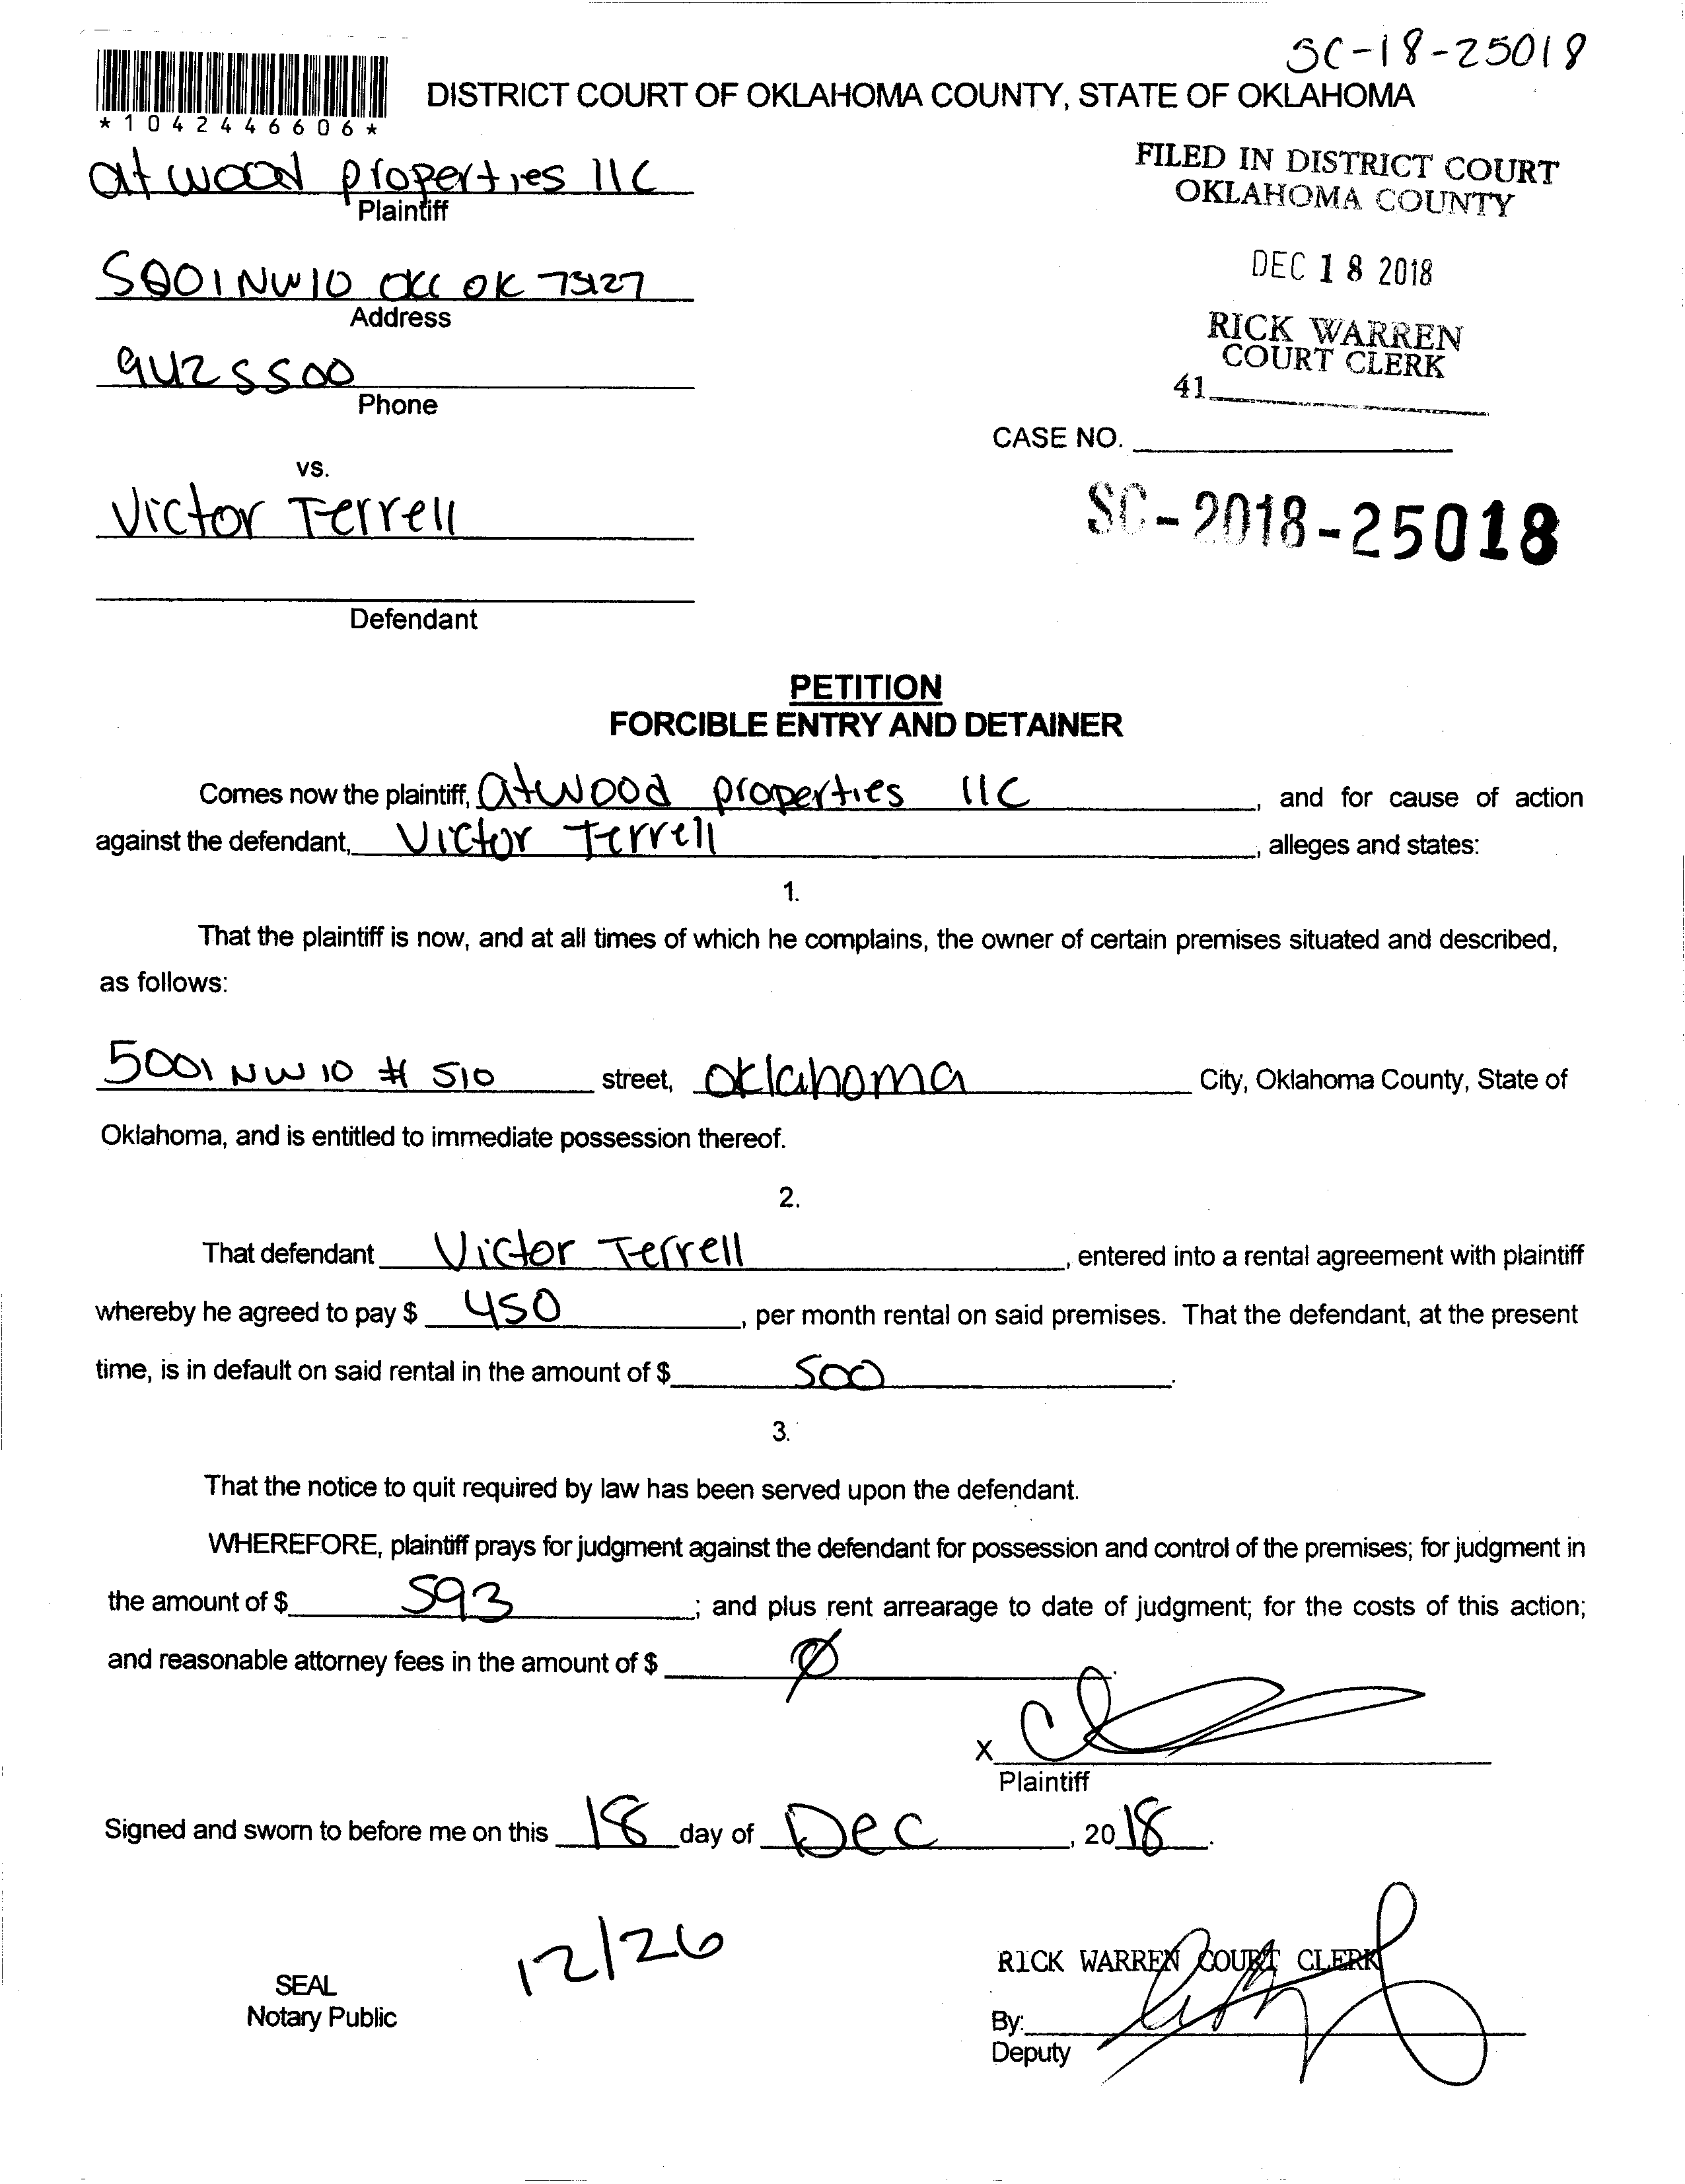 SC-18-25018
*1042446606*
DISTRICT COURT OF OKLAHOMA COUNTY, STATE OF OKLAHOMA
atwood properties llc
Plaintiff
FILED IN DISTRICT COURT
OKLAHOMA COUNTY
5001 NW 10 OKC OK 73127
Address
DEC 18 2018
RICK WARREN
COURT CLERK
41
9425500
Phone
CASE NO.
vs.
Victor Terrell
SC-2018-25018
Defendant
PETITION
FORCIBLE ENTRY AND DETAINER
Comes now the plaintiff, atwood properties llc, and for cause of action
against the defendant, Victor Terrell, alleges and states:
1.
That the plaintiff is now, and at all times of which he complains, the owner of certain premises situated and described,
as follows:
5001 NW 10 # 510 street, Oklahoma City, Oklahoma County, State of
Oklahoma, and is entitled to immediate possession thereof.
2.
That defendant Victor Terrell, entered into a rental agreement with plaintiff
whereby he agreed to pay $ 450, per month rental on said premises. That the defendant, at the present
time, is in default on said rental in the amount of $ 500.
3.
That the notice to quit required by law has been served upon the defendant.
WHEREFORE, plaintiff prays for judgment against the defendant for possession and control of the premises; for judgment in
the amount of $ 593; and plus rent arrearage to date of judgment; for the costs of this action;
and reasonable attorney fees in the amount of $ Ø.
X
Plaintiff
Signed and sworn to before me on this 18 day of Dec, 2018.
12/26
SEAL
Notary Public
RICK WARREN COURT CLERK
By:
Deputy